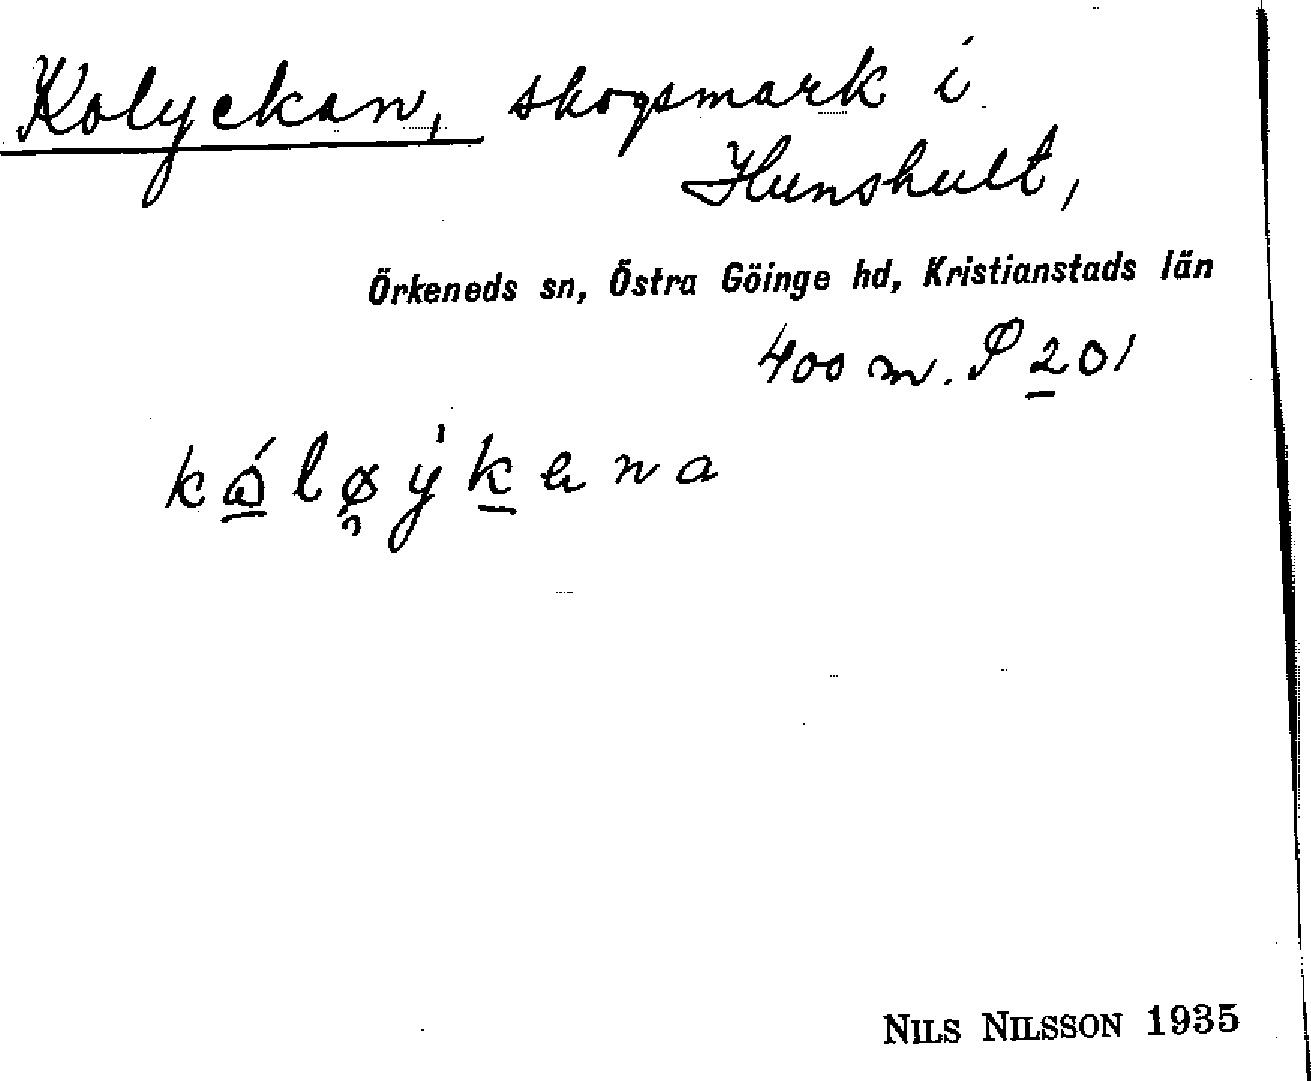 Kolyckan, skogsmark i
Hunshult,
Örkeneds sn, Östra Göinge hd, Kristianstads län
400 m. P 201
NILS NILSSON 1935